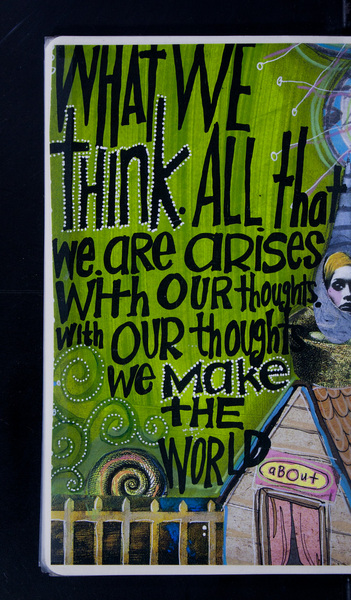 WHAT WE
THINK. ALL that
we. are arises
with our thoughts.
with our thoughts
we make
THE
WORLD
about